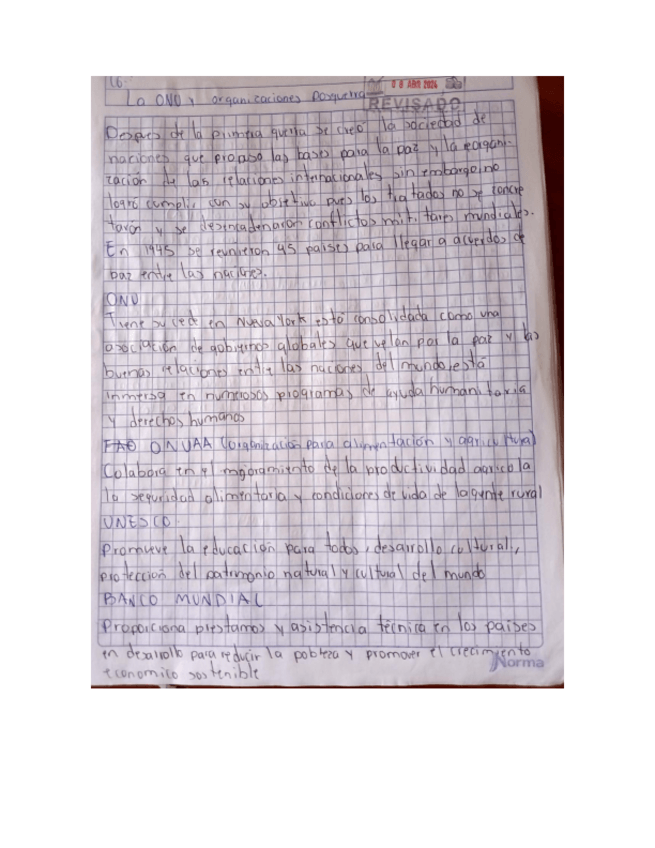 16.
08 ABR 2026
La ONU y organizaciones Posguerra
REVISADO
Despues de la primera guerra se creó la sociedad de
naniciones que propuso las bases para la paz y la reorgani-
zación de las relaciones internacionales sin embargo no
logró cumplir con su objetivo pues los tratados no se concre
taron y se desencadenaron conflictos militares mundiales.
En 1945 se reunieron 45 paises para llegar a acuerdos de
paz entre las naciones.
ONU
Tiene su cede en Nueva York está consolidada como una
asociación de gobiernos globales que velan por la paz y las
buenas relaciones entre las naciones del mundo, está
inmersa en numerosos programas de ayuda humanitaria
y derechos humanos
FAO ONUAA (organización para alimentación y agricultura)
Colabora en el mejoramiento de la productividad agricola
la seguridad alimentaria y condiciones de vida de la gente rural
UNESCO.
Promueve la educación para todos, desarrollo cultural,
protección del patrimonio natural y cultural del mundo
BANCO MUNDIAL
Proporciona prestamos y asistencia técnica en los paises
en desarollo para reducir la pobreza y promover el crecimiento
economico sostenible
Norma